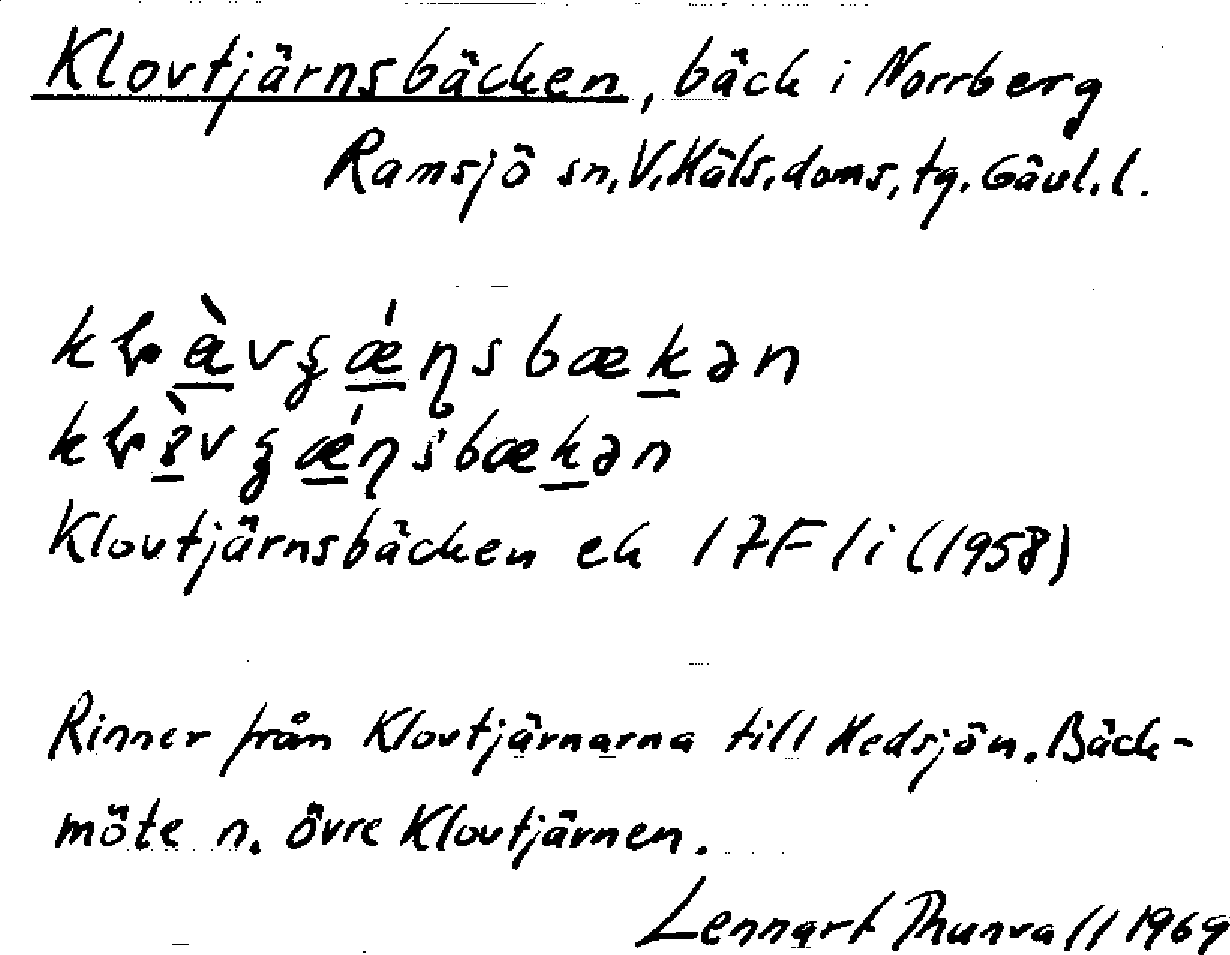 Klovtjärnsbäcken, bäck i Norrberg
Ramsjö sn, V. Häls. doms. tg. Gävl. l.
Klovtjärnsbäcken ek 17F 1i (1958)
Rinner från Klovtjärnarna till Hedsjön. Bäck-
möte n. övre Klovtjärnen.
Lennart Thunvall 1969